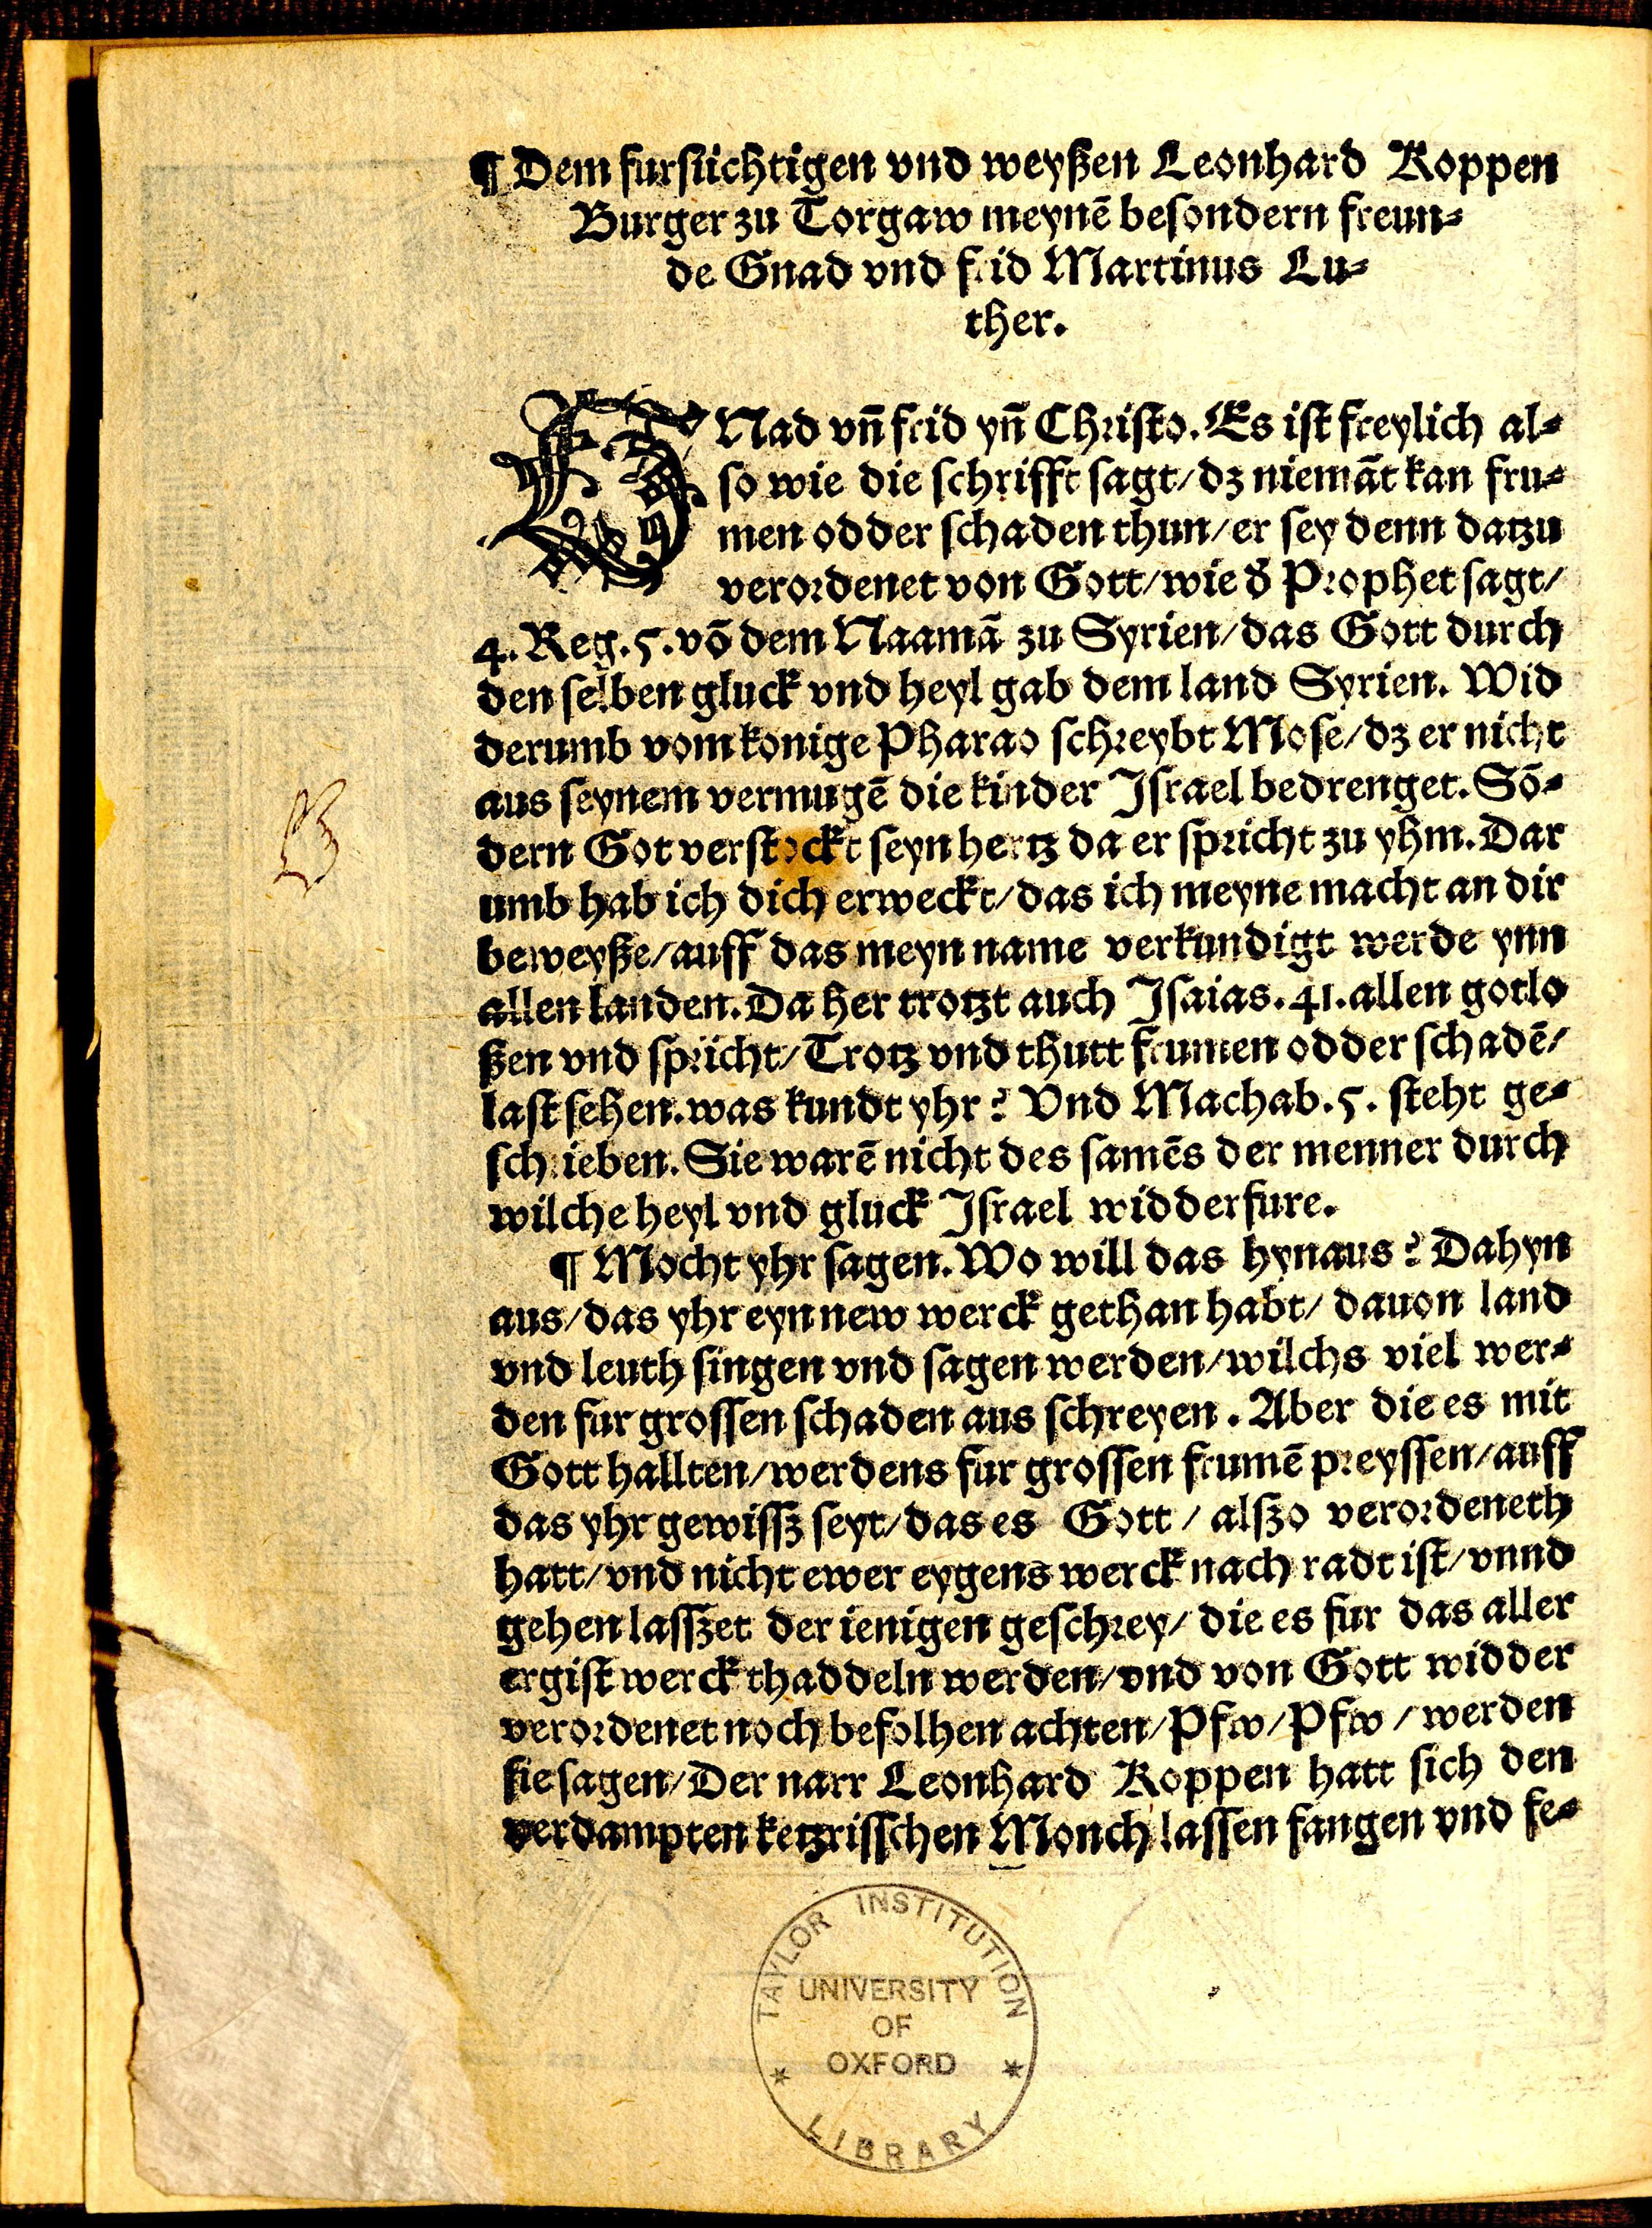 ¶ Dem fursuchtigen vnd weyßen Leonhard Koppen
Burger zu Torgaw meynē besondern freun⸗
de Gnad vnd frid Martinus Lu⸗
ther.
GNad vñ frid yñ Christo. Es ist freylich al⸗
so wie die schrifft sagt/ dz niemāt kan fru⸗
men odder schaden thun/ er sey denn datzu
verordenet von Gott/ wie d̄ Prophet sagt/
4. Reg. 5. vō dem Naamā zu Syrien/ das Gott durch
den selben gluck vnd heyl gab dem land Syrien. Wid
derumb vom konige Pharao schreybt Mose/ dz er nicht
aus seynem vermugē die kinder Israel bedrenget. Sō⸗
dern Got verstockt seyn hertz da er spricht zu yhm. Dar
umb hab ich dich erweckt/ das ich meyne macht an dir
beweyße/ auff das meyn name verkundigt werde ynn
allen landen. Da her trotzt auch Isaias. 41. allen gotlo
ßen vnd spricht/ Trotz vnd thutt frumen odder schadē/
last sehen. was kundt yhr? Vnd Machab. 5. steht ge⸗
schrieben. Sie warē nicht des samēs der menner durch
wilche heyl vnd gluck Israel widderfure.
¶ Mocht yhr sagen. Wo will das hynaus? Dahyn
aus/ das yhr eyn new werck gethan habt/ dauon land
vnd leuth singen vnd sagen werden/ wilchs viel wer⸗
den fur grossen schaden aus schreyen. Aber die es mit
Gott hallten/ werdens fur grossen frumē preyssen/ auff
das yhr gewissz seyt/ das es Gott/ alszo verordeneth
hatt/ vnd nicht ewer eygens werck nach radt ist/ vnnd
gehen lasszet der ienigen geschrey/ die es fur das aller
ergist werck thaddeln werden/ vnd von Gott widder
verordenet noch befolhen achten/ Pfw/ Pfw/ werden
sie sagen/ Der narr Leonhard Koppen hatt sich den
verdampten ketzrisschen Monch lassen fangen vnd fe⸗
TAYLOR INSTITUTION
UNIVERSITY
OF
OXFORD
LIBRARY